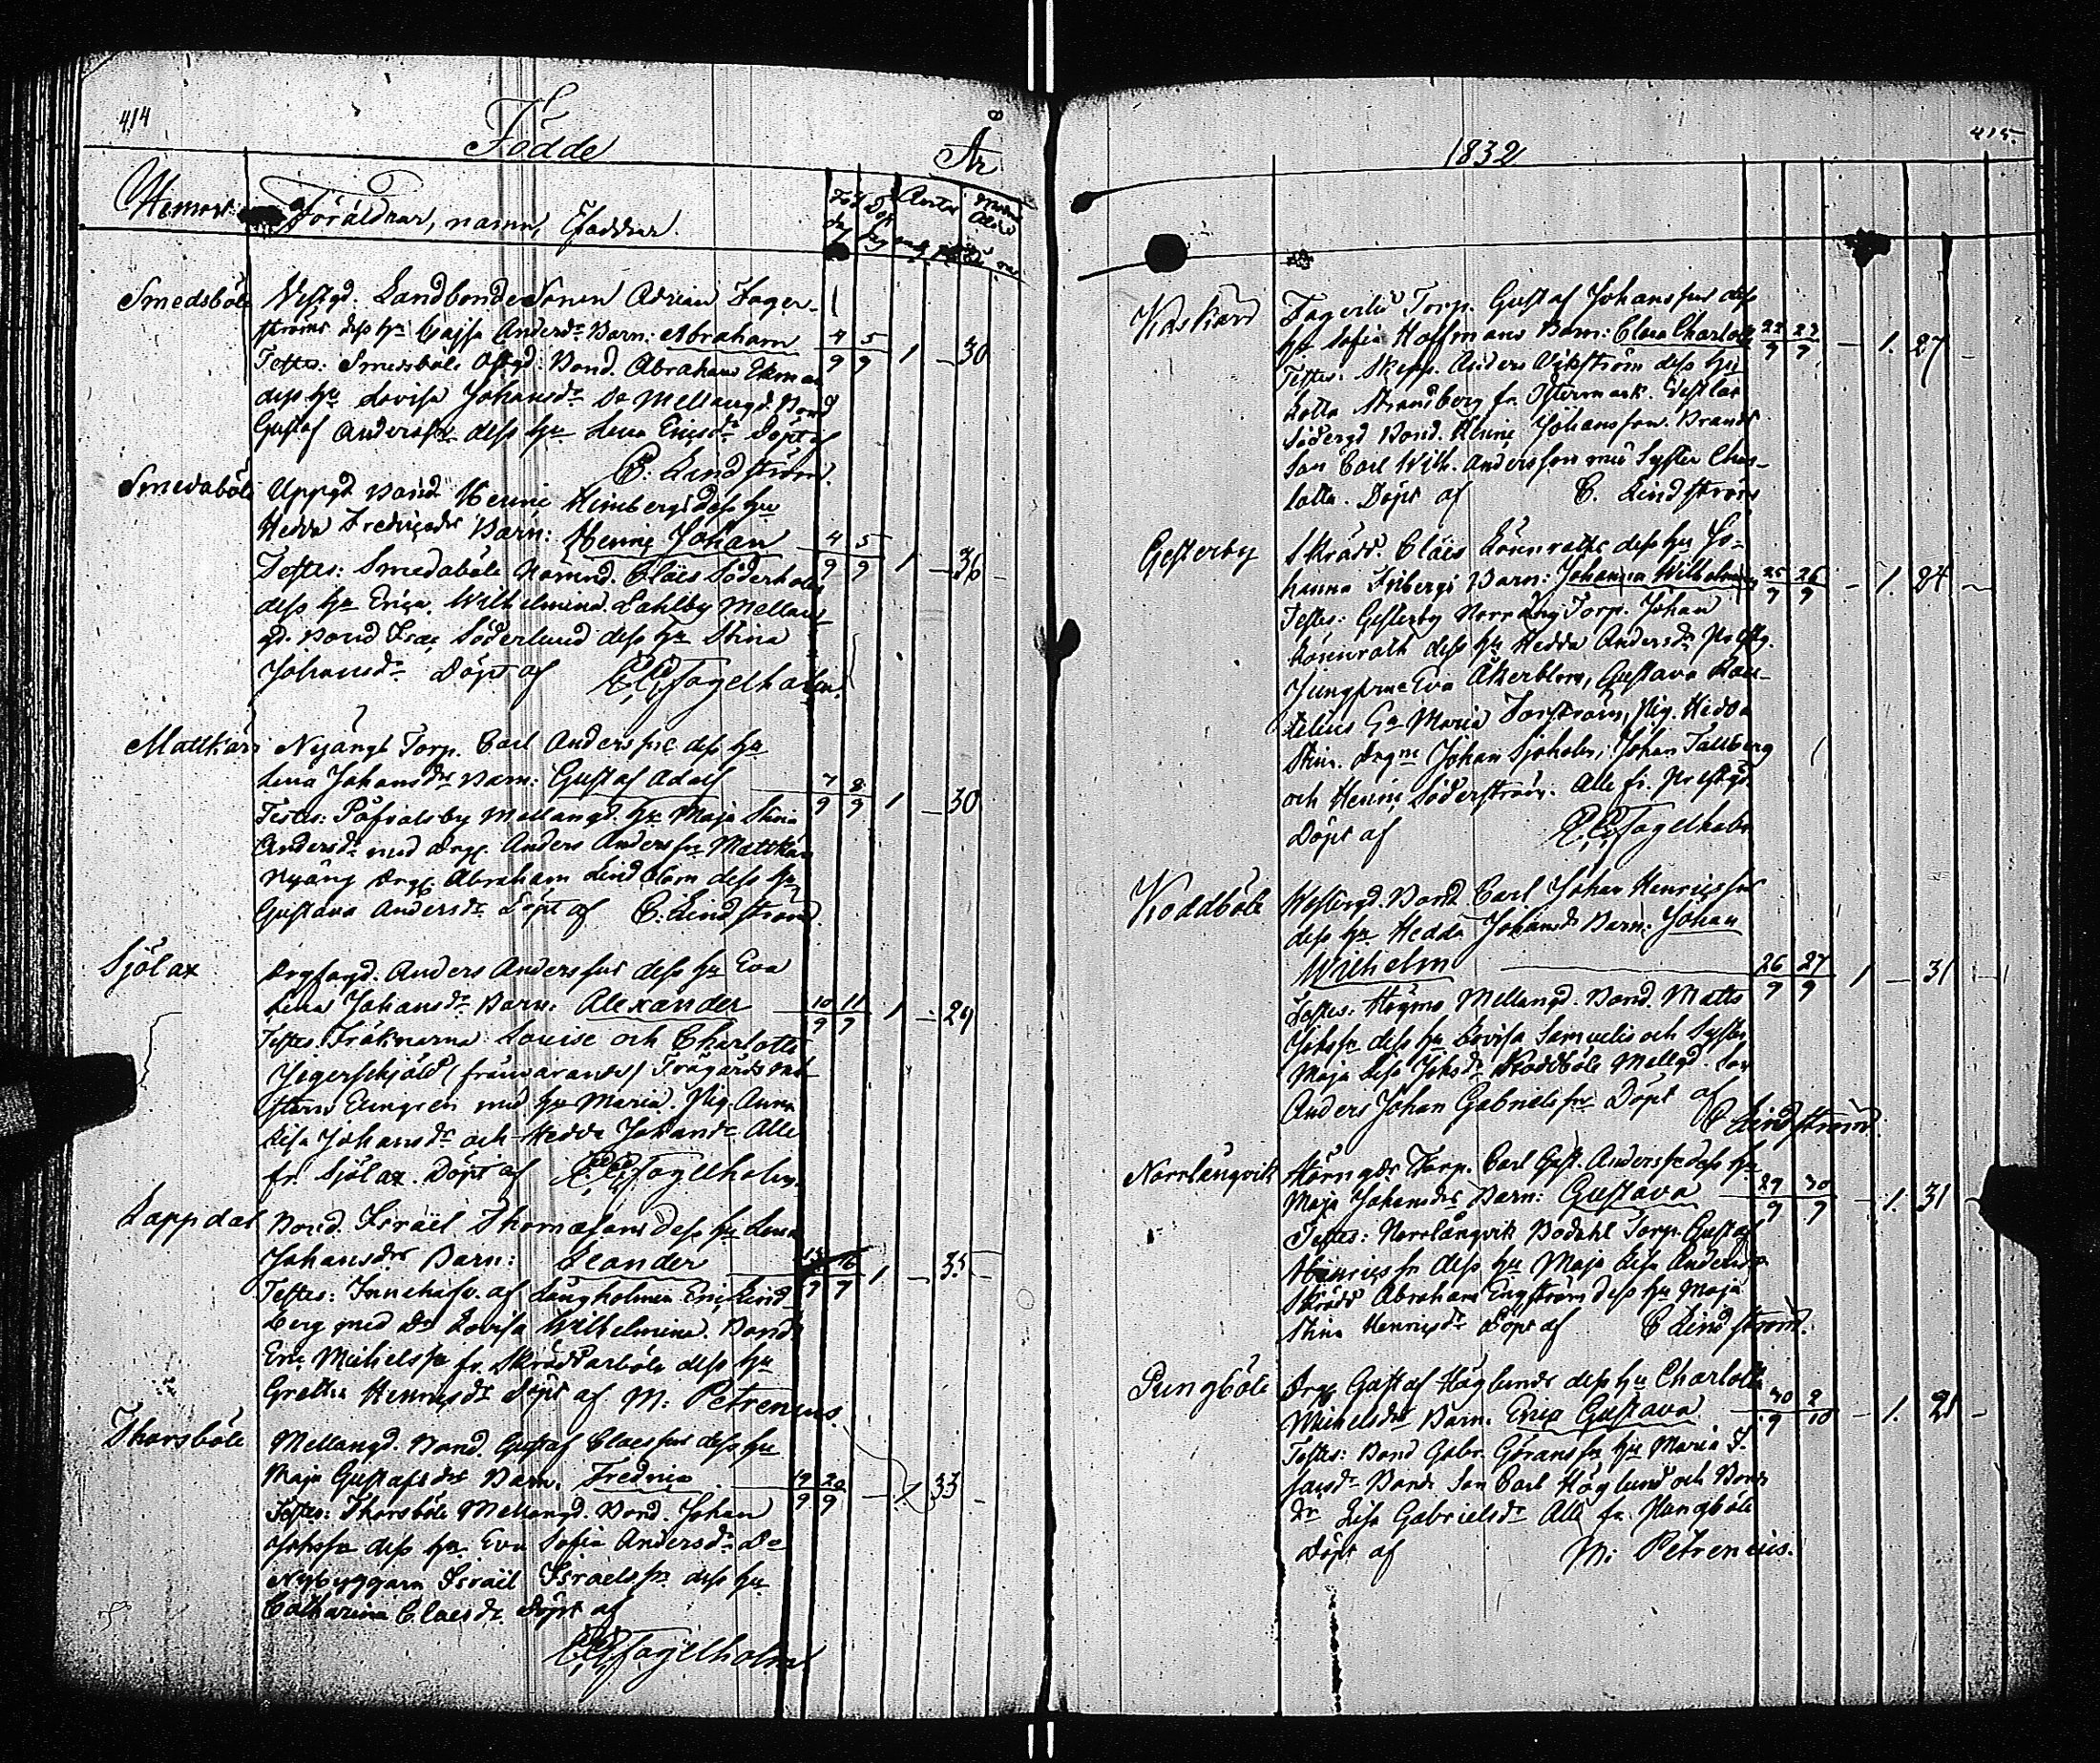 414
Födde
År
Hemort
Föräldrar, namn, Faddrar.
Smedsböle Vestgd. Landbonde Sonen Adrian Fager-
ströms dess hu Cajsa Andersdr Barn: Abraham 4/9 5/9 1 – 30
Testes: Smedsböle Bond. Abraham Ekman
dess hu Lovisa Johansdr Do Mellangd. Bond
Gustaf Andersson dess hu Lena Ericsdr Döpt af
C. Lindström.
Smedsböle Uppgd Bond Henric Himbergs dess hu
Hedda Fredricsdrs Barn: Henric Johan 4/9 5/9 1 – 36
Testes: Smedsböle Claes Söderholm
dess hu Erica Wilhelmina. Dahlby Mellan-
gd. Bond Isac Söderlund dess hu Stina
Johansdr Döpt af Fagelholm.
Mattkärr Nyängs Torp. Carl Anderssns dess hu
Lena Johansdrs Barn: Gustaf Adolf 7/9 8/9 1 – 30
Testes: Påfvalsby Mellangd. hu Maja Stina
Andersdr med drg. Anders Anderssn Mattkärr
Nyäng drg. Abraham Lindblom dess hu
Gustava Andersdr Döpt af C. Lindström
Sjölax Anders Anderssns dess hu Eva
Lena Johansdrs Barn: Alexander 10/9 11/9 1 – 29
Testes. Fröknarna Louise och Charlotte
Jägerskjöld (frånvarande) Trägårdsmä-
staren med hu Maria. Pig. Anna
Lisa Johansdr och Hedda Johansdr Alle
fr. Sjölax. Döpt af Fagelholm.
Lappdal Bond. Israël Thomassons dess hu Lena
Johansdrs Barn: Leander 15/9 16/9 1 – 35
Testes: Innehafv. af Långholmen Eric Lind-
berg med dr Lovisa Wilhelmina. Bond
Eric Michelssn fr. Skräddarböle dess hu
Gretha Henricsdr Döpt af M: Petrenius.
Thorsböle Mellangd. Bond. Gustaf Claessons dess hu
Maja Gustafsdrs Barn. Fredrica 19/9 20/9 – 1 33 –
Testes: Thorsböle Mellangd. Bond. Johan
Johssn dess hu Eva Sofia Andersdr Do
Nybyggarn Israël Israelssn dess hu
Catharina Claesdr. Döpt af
Fagelholm
415.
1832
Vidskärd Fagerlid Torp. Gustaf Johanssons dess
hu Sofia Hoffmans Barn: Clara Charlotta 22/9 23/9 – 1. 27 –
Testes. Skepp. Anders Wikström dess hu
Lotta Strandberg fr. Östermark. Vestlax
Södergd Bond. Henric Johansson. Bonde
Son Carl Wilh. Andersson med Syster Char-
lotta. Döpt af C. Lindström
Gesterby Skrädd. Claes Könnroths dess hu Jo-
hanna Fribergs Barn: Johanna Wilhelmina 25/9 26/9 – 1. 24 –
Testes: Gesterby Norräng Torp. Johan
Könnroth dess hu Hedda Andersdr Prestg.
Jungfrur Eva Åkerblom, Gustava
Maria Forsström, Pig. Hedda
Drgne Johan Sjöholm, Johan Tallberg
och Henric Söderström. Alle fr. Prestgd
Döpt af Fagelholm
Koddböle Westergd. Bond. Carl Johan Henricssons
dess hu Hedda Johansdrs Barn: Johan
Wilhelm 26/9 27/9 1 – 31 –
Testes: Högmo Mellangd. Bond. Matts
Johssn dess hu Lovisa Samuelis och Syster
Maja Lisa Johsdr Koddböle Mellgd. Son
Anders Johan Gabrielssn Döpt af
C Lindström.
Norrlångvik Torp. Carl Gust. Anderssns dess hu
Maja Johansdrs Barn: Gustava 29/9 30/9 – 1. 31
Testes: Norrlångvik Bodahl Torp. Gustaf
Henricssn dess hu Maja Lisa Andersdr
Skrädd Abraham Engström dess hu Maja
Stina Henricsdr Döpt af C Lindström.
Pungböle Drg Gustaf Höglunds dess hu Charlotta
Michelsdrs Barn. Erica Gustava 30/9 2/10 – 1. 21 –
Testes: Bond Gabr. Göransson hu Maria I-
sacsdr Bonde Son Carl Höglund och Bonde
Dr Lisa Gabrielsdr Alle fr. Pungböle
Döpt af M: Petrenius.